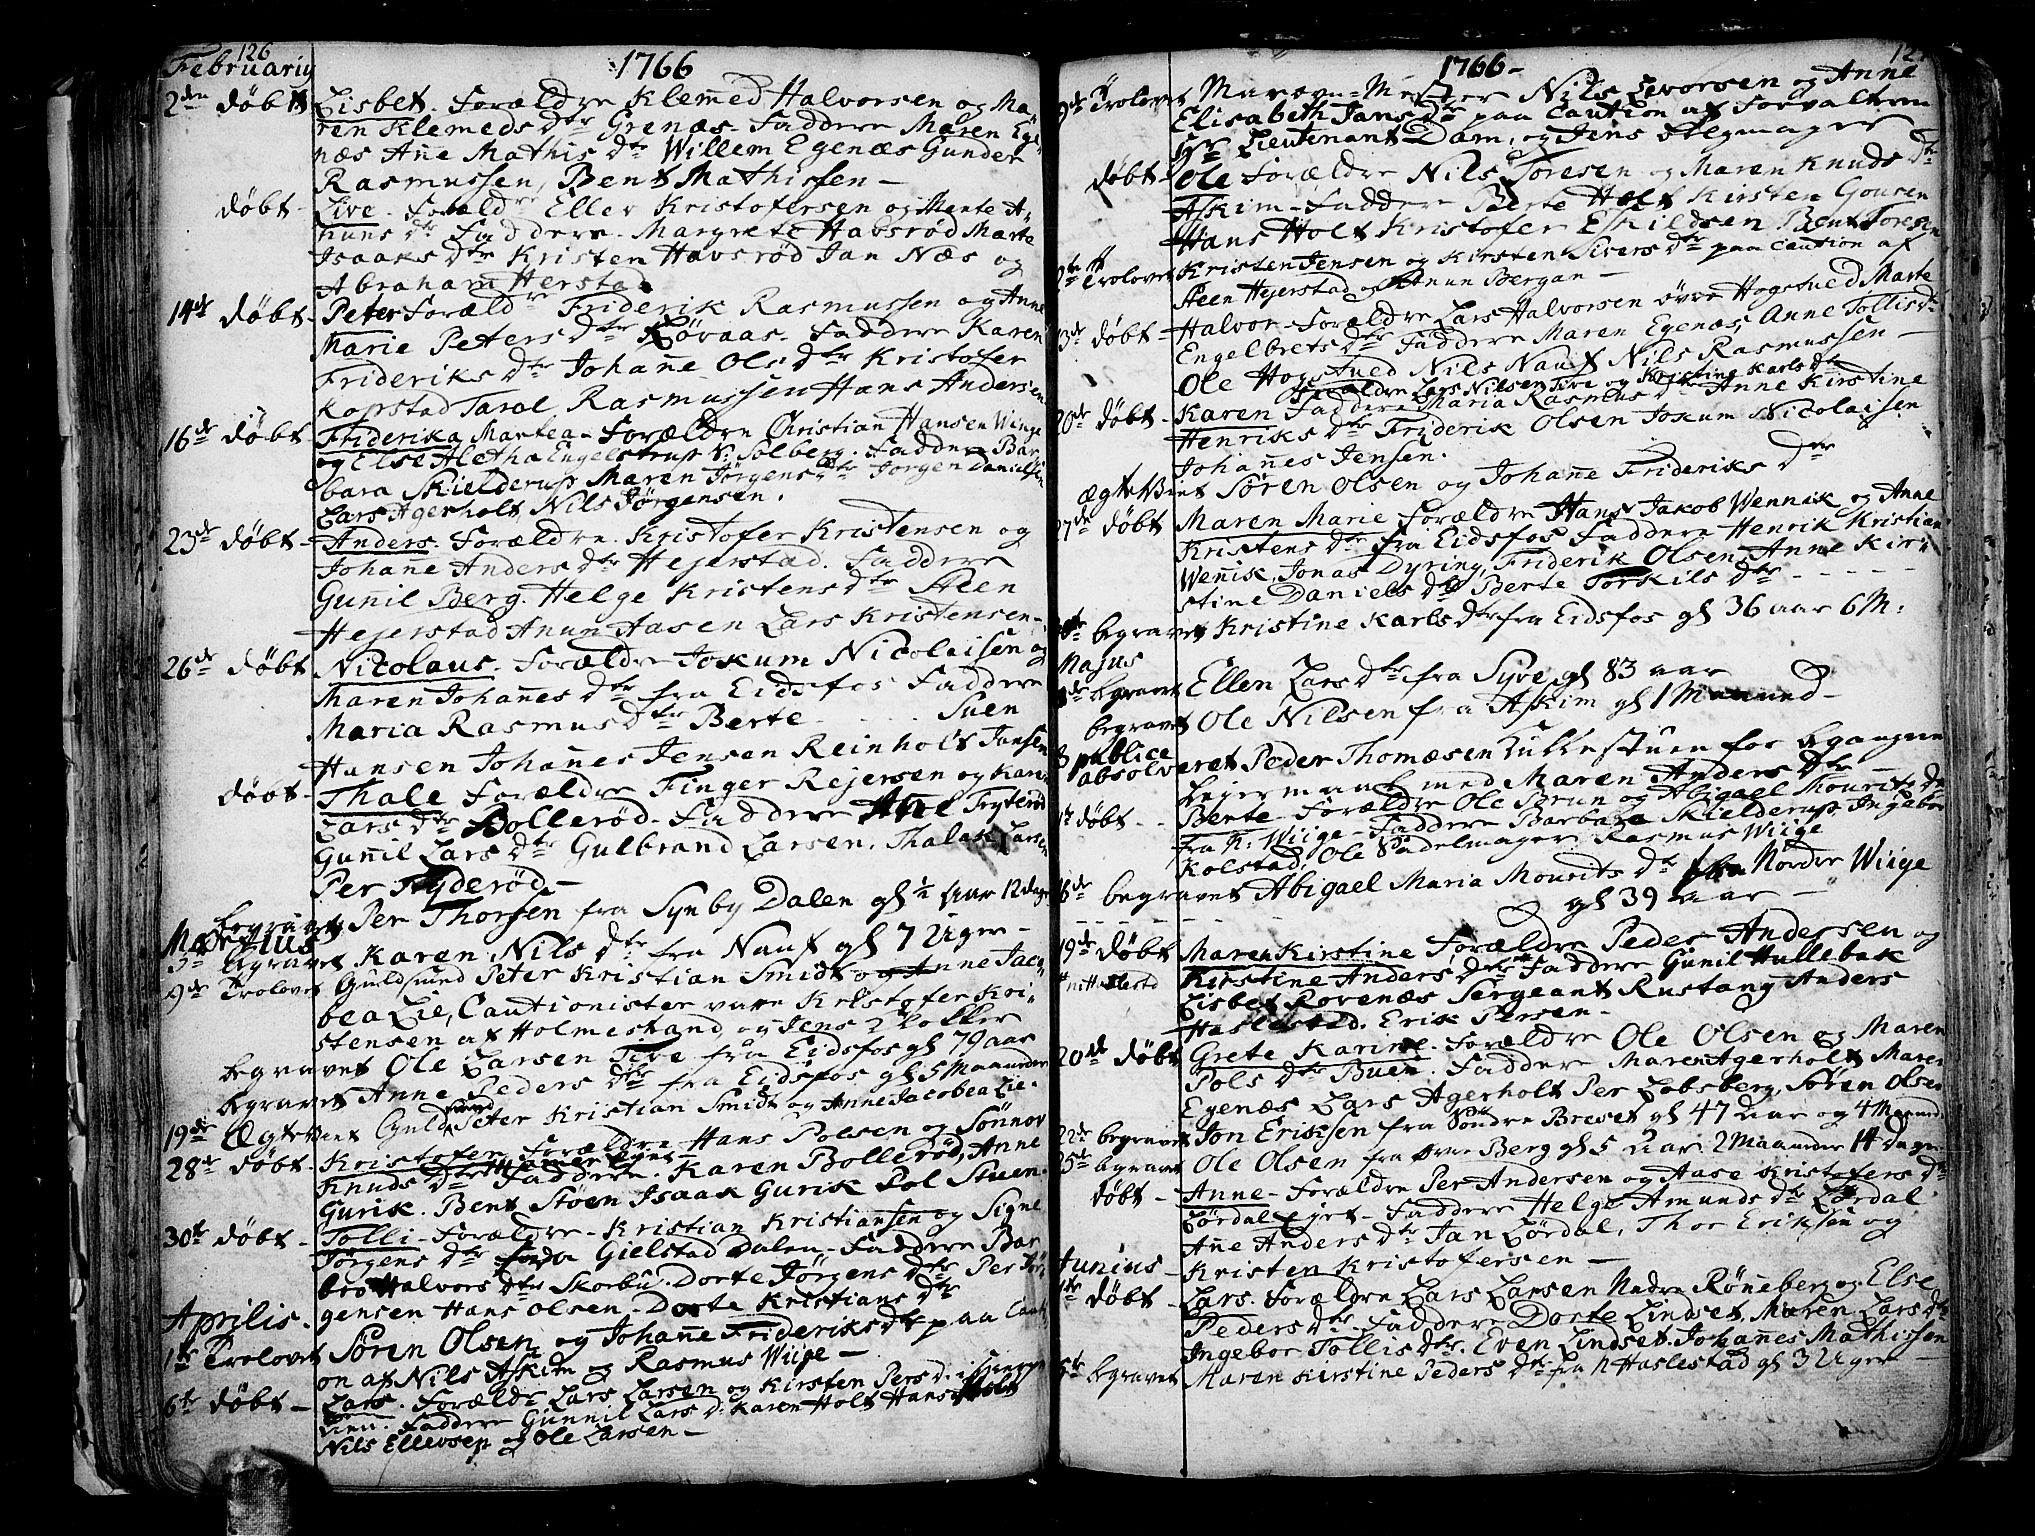 126
Februarij 1766
2den döbt Lisbet. Forældre Klemed Halvorsen og Ma-
ren Klemeds Dtr Grenæs. Faddere Maren Ege-
næs Añe Mathis Dtr Willem Egenæs Gunder
Rasmussen, Bent Mathissen –
döbt – Live. Foræld Ellev Kristofersen og Mente A-
nuns Dtr Faddere. Margrete Havsrød Marte
Isaaks Dtr Kristen Havsrød Jan Næs og
Abraham Herstad
14de döbt – Peter Foræld Friderik Rasmussen og Anne
Marie Peters Dtr Rövaas. Faddere Karen
Frideriks Dtr Johañe Ols Dtr Kristofer
Kopstad Tarol Rasmussen Hans Andersen
16de döbt Friderika Martea – Forældre Christian Hansen Winge
og Else Aletha Engelstrup v: Solberg. Faddere Bar-
bara Skielderup Maren Jörgens Dtr Jörgen Danielsen
Lars Agerholt, Nils Jörgensen.
23de döbt – Anders. Forældre. Kristofer Kristensen og
Johañe Anders Dtr Hejerstad. Faddere
Guñil Berg. Helge Kristens Dtr Steen
Hejerstad Anun Aasen Lars Kristensen –
26de döbt Nicolaus. Forældre Jokum Nicolaisen og
Maren Johañes Dtr fra Eidsfos Faddere
Maria Rasmus Dtr Berte . . . Suen
Hansen Johañes Jensen Reinholt Jansen
döbt – Thale Forældre Finger Rejersen og Kari
Lars Dtr Bollerød – Faddere Tryterød
Guñil Lars Dtr Gulbrand Larsen, Thalak Larsen
Per Tryderød –
begravet Per Thorsen fra Synby Dalen gl ½ aar 12 dage
Martius
begravet Karen Nils Dtr fra Nauf gl 7 Uger –
9de Trolovet Guldsmed Peter Kristian Smidt og Anne Jaco-
bea Lie, Cautionister vare Kristofer Kri-
stensen af Holmestrand, og Jens Klokker
begravet Ole Larsen Tive fra Eidsfos gl 79 aar
begravet Anne Peders Dtr fra Eidsfos gl 5 Maaneder
19de Ægte Viet Guldsmed Peter Kristian Smidt og Anne Jacobea Lie.
28de döbt. Kristofer Forældre Hans Polsen og Sönnov
Knuds Dtr Faddere. Karen Bollerød, Anne
Gurik. Bent Stöen Isaak Gurik Pol Stuen.
30te döbt – Tolli – Forældre – Kristian Kristiansen og Signe
Jörgens Dtr Gielstad Dalen – Faddere Bar
bro Halvors Dtr Skorbu. Dorte Jörgens Dtr Per Jör-
gensen Hans Olsen – Dorte Kristians Dtr
Aprilis.
1te Trolovet Sören Olsen og Johañe Frideriks Dtr paa Cauti-
on af Nils Askim og Rasmus Wiige –
6te döbt – Lars. Foræld Lars Larsen og Kirsten Pers D.
Faddere Gunnil Lars D. Karen Holt Hans Holt
Nils Ellevsen og Ole Larsen –
127
1766 –
9de Trolovet Masovn-Mester Nils Levorsen og Anne
Elisabeth Jans Dtr paa Caution af Forvalteren
Hr Lieutenant Dam, og Jens Belgmager
döbt – Ole Forældre Nils Toresen og Maren Knuds Dtr
Askim – Faddere Berte Holt Kirsten Gouren
Hans Holt Kristofer Eskildsen Bent Toresen
Trolovet Kristen Jensen og Kirsten Sivers Dtr paa Caution af
Steen Hejerstad og Anun Bergan –
13de döbt – Halvor – Forældre Lars Halvorsen övre Hogstued Marte
Engelbrets Dtr Faddere Maren Egenæs, Anne Tollis Dtr
Ole Hogstued Nils Nauf Nils Rasmussen –
Forældre Lars Nilsen Tive og Kristine Karls Dtr
20de döbt – Karen Faddere Maria Rasmus Dtr Anne Kirstine
Henriks Dtr Friderik Olsen Jokum Nicolaisen
Johañes Jensen.
Ægte Viet Sören Olsen og Johañe Frideriks Dtr
27de döbt Maren Marie Forældre Hans Jakob Wennik og Anne
Kristens Dtr fra Eidsfos Faddere Henrik Kristian
Weñik, Jonas Dyring, Friderik Olsen, Anne Kir-
stine Daniels Dtr Berte Torkils Dtr - - - - -
begravet Kristine Karls Dtr fra Eidsfos gl 36 aar 6 M:
Majus
begravet Ellen Lars Dtr fra Syve, gl 83 aar
begravet Ole Nilsen fra Askim gl 1 Maaned –
publice
absolveret Peder Thomæsen Lillestuen for begangne
Lejermaal med Maren Anders Dtr
döbt – Bente – Forældre Ole Brun og Abigael Mourits Dtr
fra N: Wiige – Faddere Barbara Skielderup, Ingebor
Kolstad, Ole Sadelmager, Rasmus Wiige
begravet Abigael Maria Mourits Dtr fra Nordre Wiige
gl 39 aar –
19de döbt Maren Kirstine Forældre Peder Andersen og
Kirstine Anders Dtr Faddere Gunil Hullebak
Lisbet Rovenæs Sergeant Rustang Anders
Haslestad. Erik Persen –
20de döbt Grete Karine. Forældre Ole Olsen og Maren
Pols Dtr Buen. Faddere Maren Agerholt Maren
Egenæs Lars Agerholt Per Lobsberg, Sören Olsen
22de begravet Jon Eriksen fra Söndre Breset gl 47 aar og 4 Maaned
25de begravet Ole Olsen fra Berg gl 5 aar 2 Maaneder 14 Dage
döbt – Anne – Forældre Per Andersen og Aase Kristofers Dtr
Lördal Ejet – Faddere Helge Amunds Dtr Lördal
Añe Anders Dtr Jan Lördal, Thor Eriksen og
Kristen Kristofersen –
Junius
1te döbt – Lars. Forældre Lars Larsen Nedre Röneberg og Else
Peders Dtr – Faddere Dorte Lindset, Maren Lars Dtr
Ingebor Tollis Dtr. Even Lindset, Johañes Mathissen
5te begravet Maren Kirstine Peders Dtr fra N Haslestad gl 3 Uger –